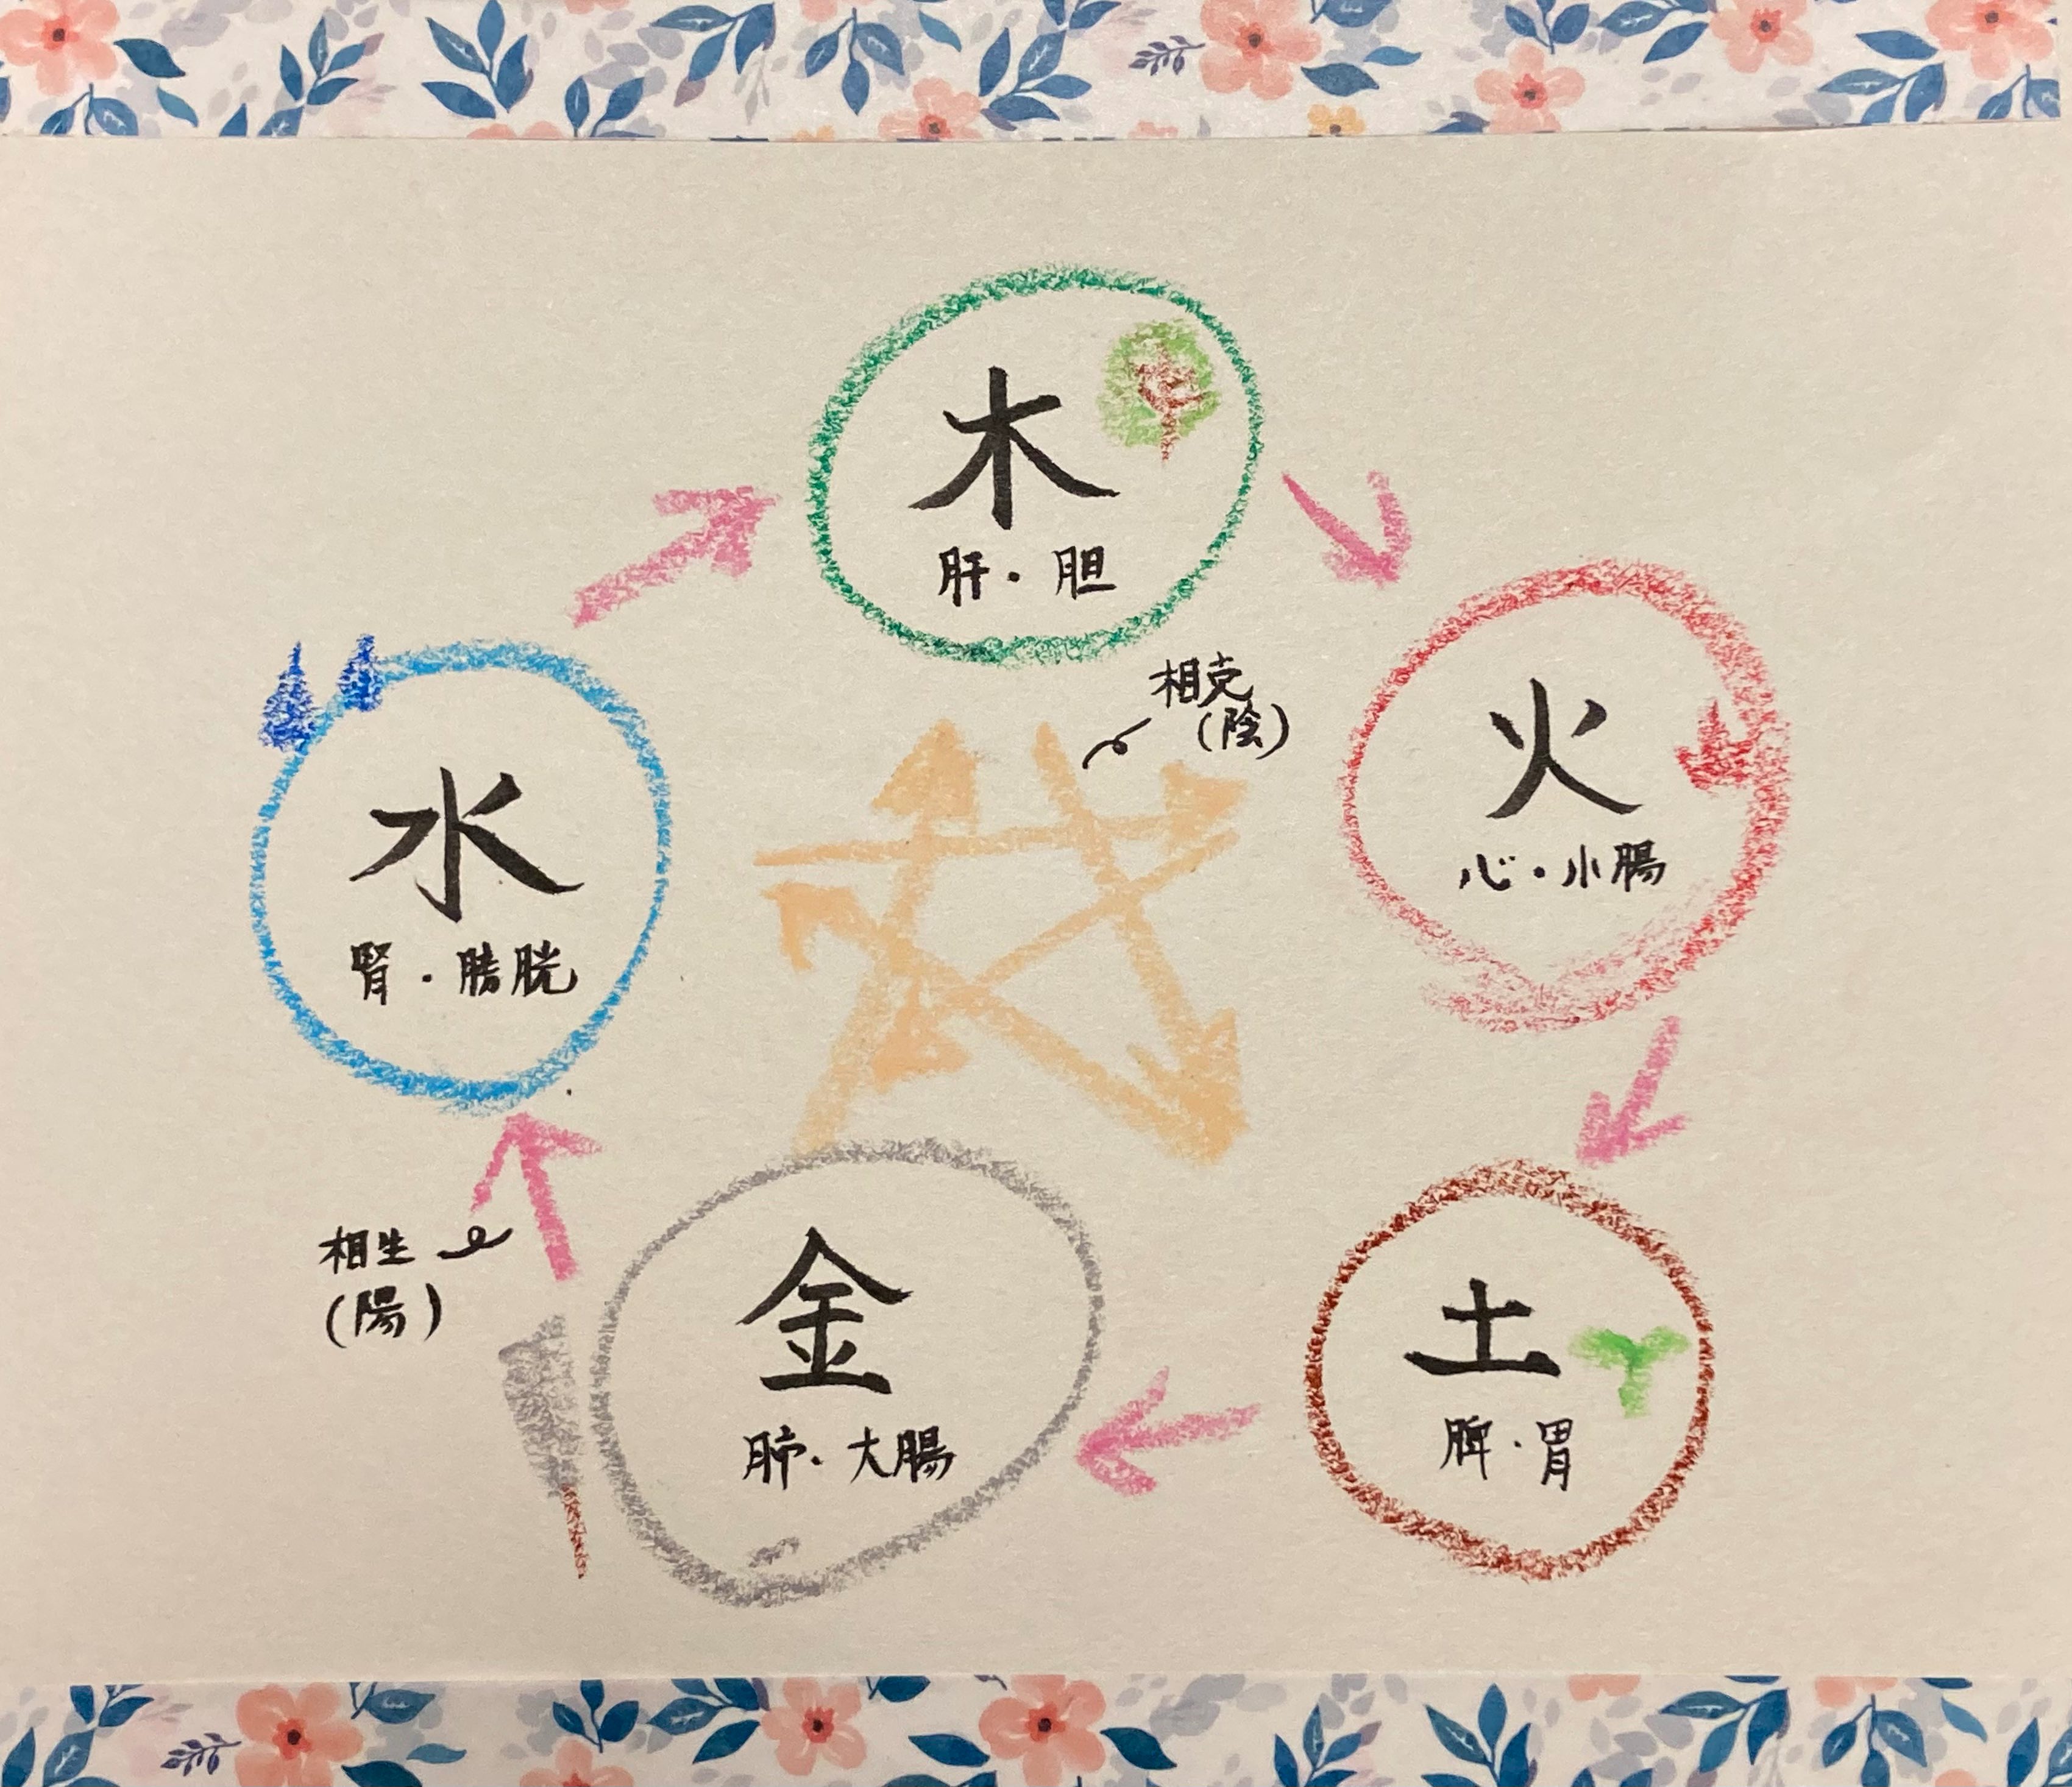 木
肝・胆
相克
(陰)
火
心・小腸
水
腎・膀胱
土
脾・胃
金
肺・大腸
相生
(陽)